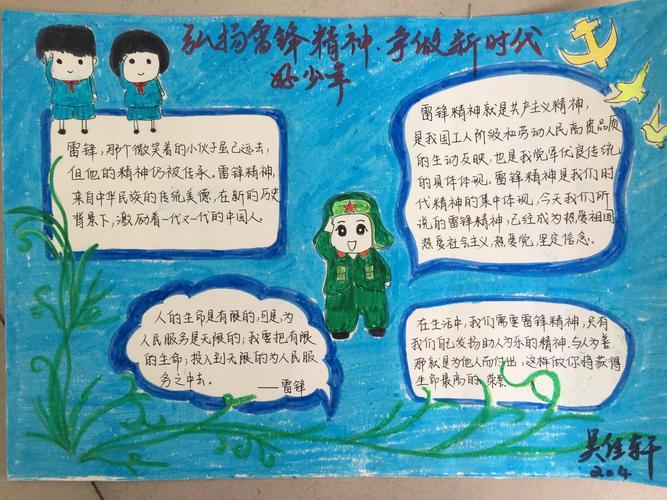 弘扬雷锋精神.争做新时代
好少年
雷锋,那个微笑着的小伙子虽已远去,
但他的精神仍被传承、雷锋精神,
来自中华民族的传统美德,在新的历史
背景下,激励着一代又一代的中国人。
雷锋精神就是共产主义精神,
是我国工人阶级和劳动人民高贵品质
的生动反映,也是我党军优良传统
的具体体现。雷锋精神是我们时
代精神的集中体现,今天我们所
说的雷锋精神,已经成为热爱祖国,
热爱社会主义,热爱党,坚定信念。
人的生命是有限的,但是,为
人民服务是无限的;我要把有限
的生命;投入到无限的为人民服
务之中去。
——雷锋
在生活中,我们需要雷锋精神,只有
我们自己发扬助人为乐的精神.与人为善.
那就是为他人而付出,这样做你将获得
生命最高的荣誉
吴佳轩
204